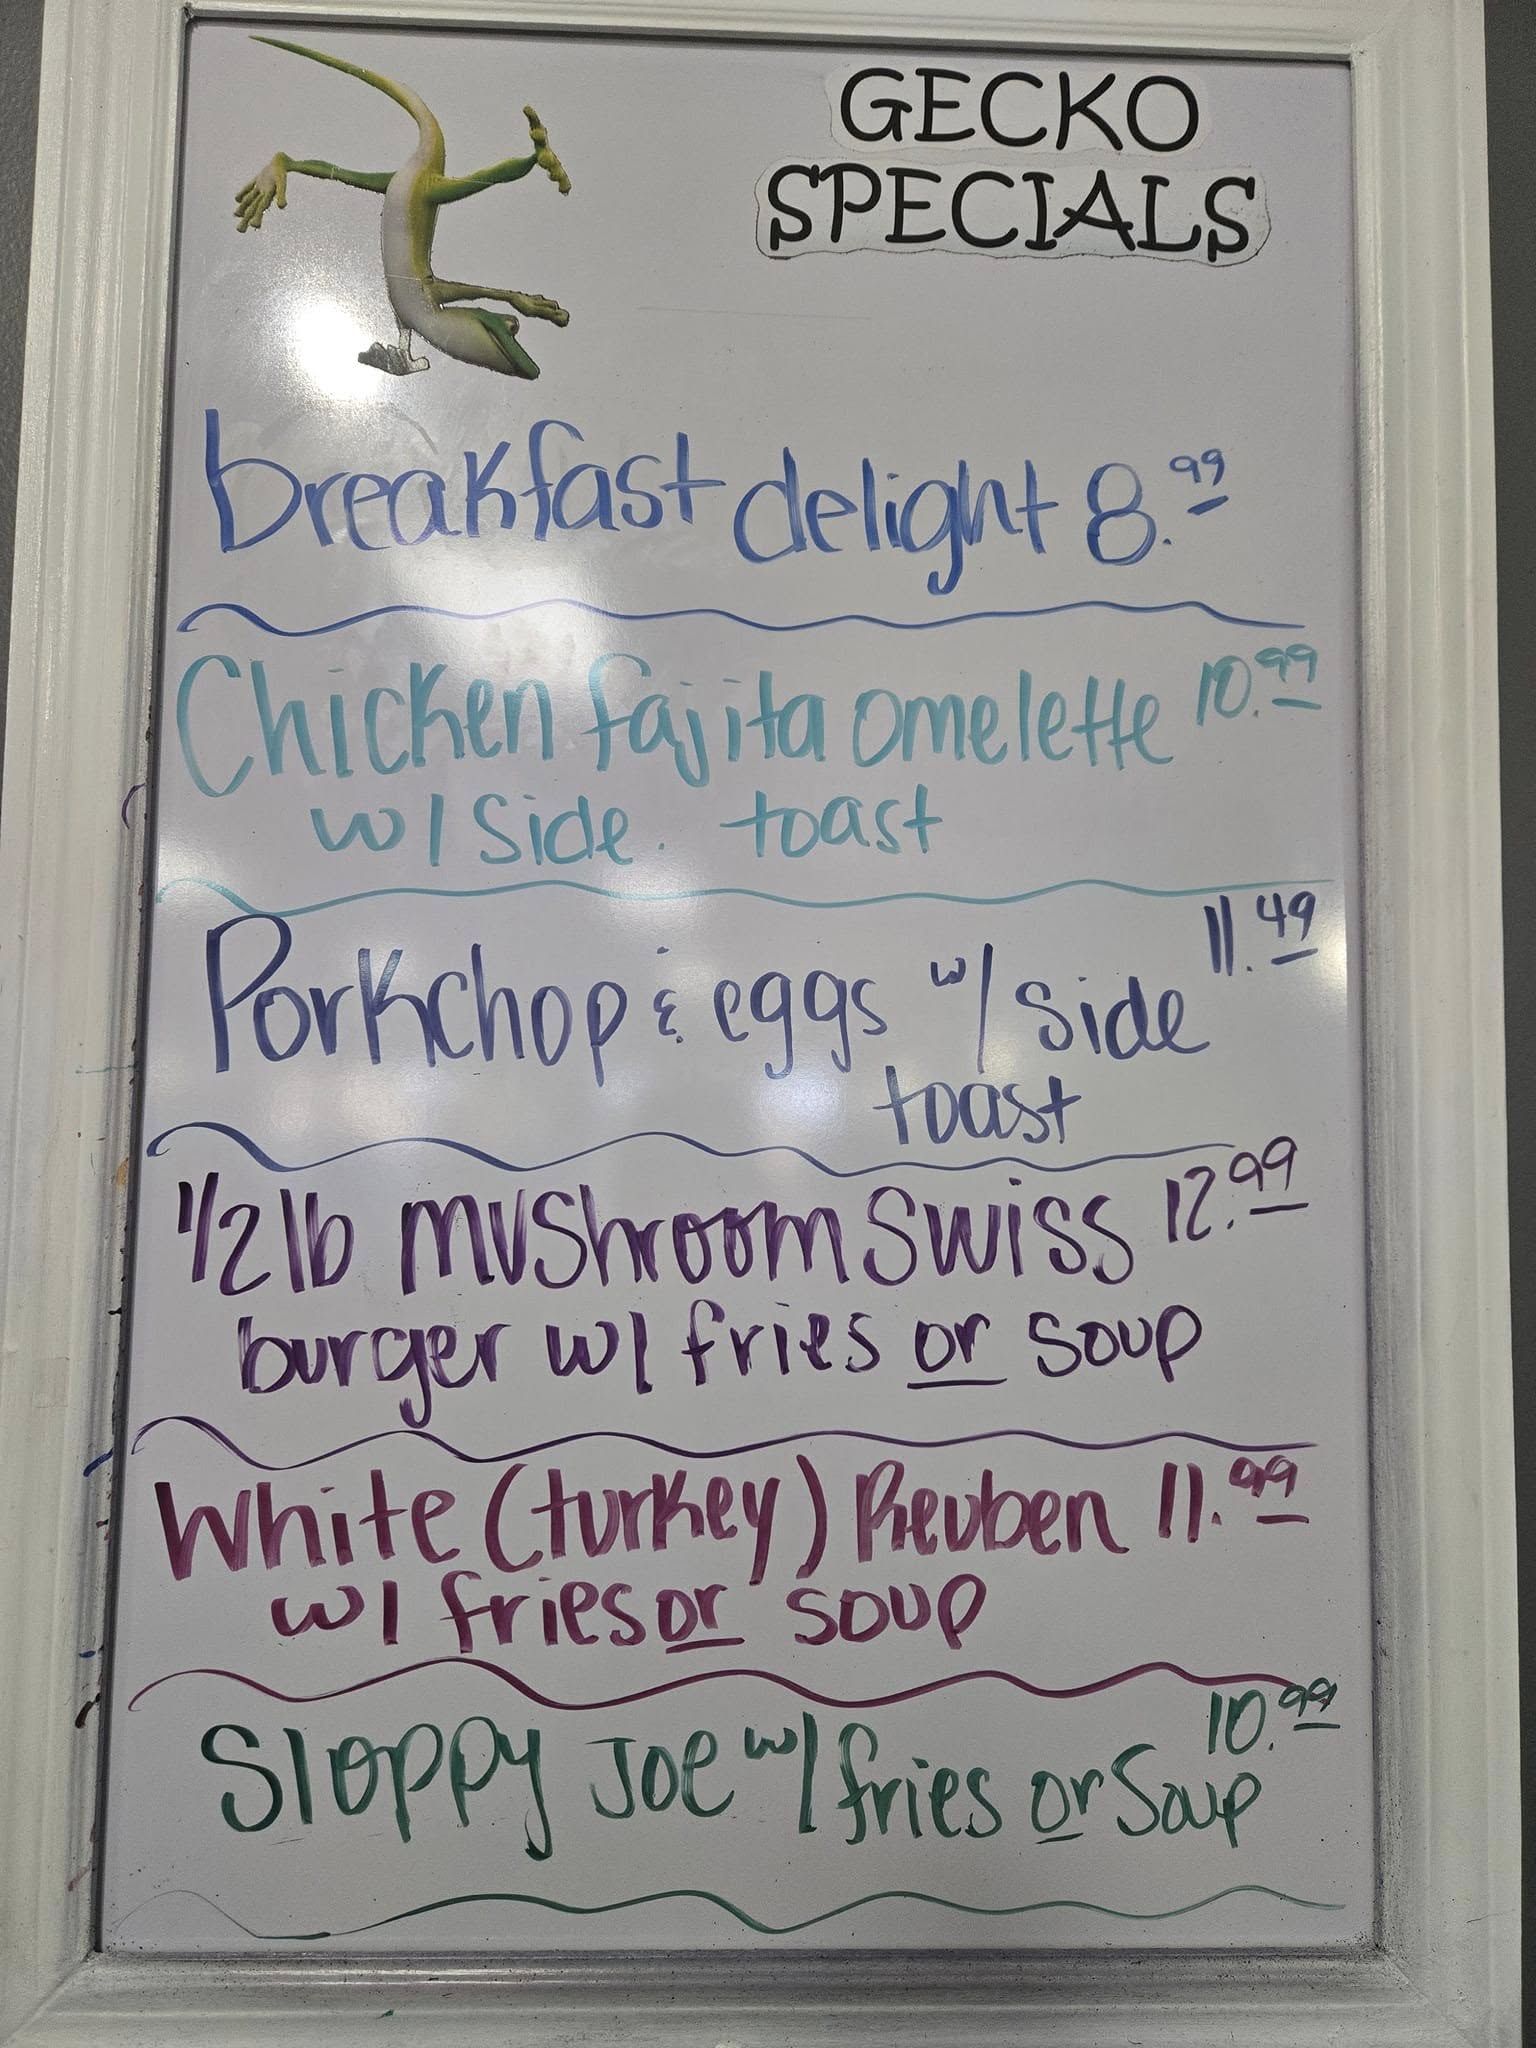 GECKO
SPECIALS
breakfast delight 8.99
Chicken fajita omelette 10.99
w/ side toast
Porkchop & eggs w/ side 11.49
toast
1/2 lb mushroom swiss 12.99
burger w/ fries or soup
White (turkey) Reuben 11.99
w/ fries or soup
Sloppy Joe w/ fries or soup 10.99